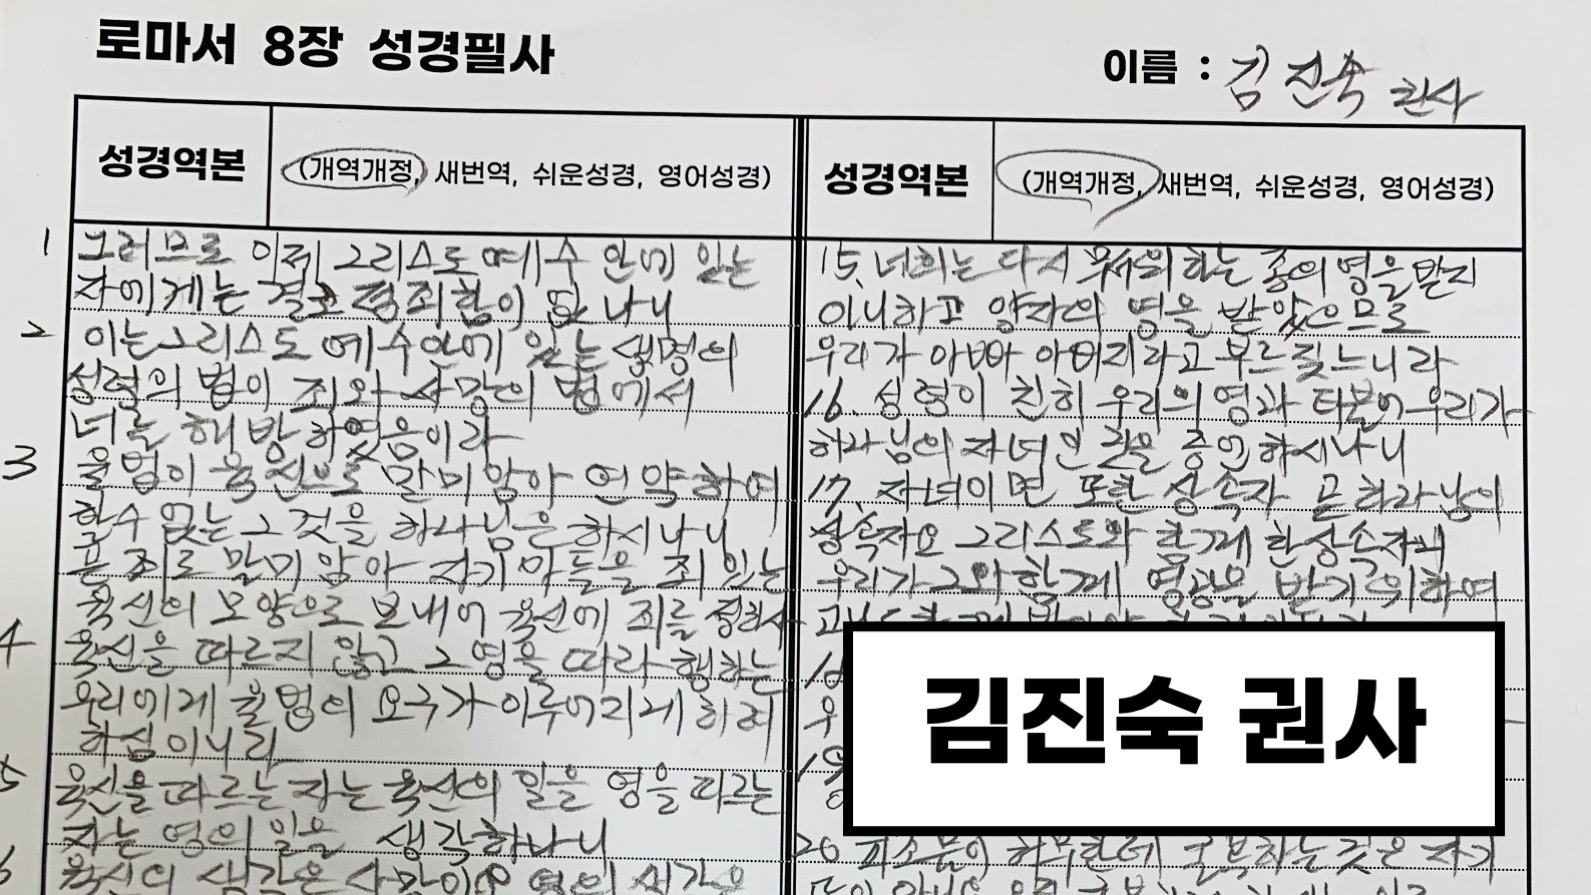 로마서 8장 성경필사
이름 : 김진숙 권사
성경역본
(개역개정, 새번역, 쉬운성경, 영어성경)
1 그러므로 이제 그리스도 예수 안에 있는
자에게는 결코 정죄함이 없나니
2 이는 그리스도 예수 안에 있는 생명의
성령의 법이 죄와 사망의 법에서
너를 해방하였음이라
3 율법이 육신으로 말미암아 연약하여
할 수 없는 그것을 하나님은 하시나니
곧 죄로 말미암아 자기 아들을 죄 있는
육신의 모양으로 보내어 육신에 죄를 정하사
4 육신을 따르지 않고 그 영을 따라 행하는
우리에게 율법의 요구가 이루어지게 하려
하심이니라
5 육신을 따르는 자는 육신의 일을 영을 따르는
자는 영의 일을 생각하나니
6 육신의 생각은 사망이요 영의 생각은
성경역본
(개역개정, 새번역, 쉬운성경, 영어성경)
15. 너희는 다시 무서워하는 종의 영을 받지
아니하고 양자의 영을 받았으므로
우리가 아빠 아버지라고 부르짖느니라
16. 성령이 친히 우리의 영과 더불어 우리가
하나님의 자녀인 것을 증언하시나니
17. 자녀이면 또한 상속자 곧 하나님의
상속자요 그리스도와 함께 한 상속자니
우리가 그와 함께 영광을 받기 위하여
18
우
19
20 피조물이 허무한데 굴복하는 것은 자기
김진숙 권사